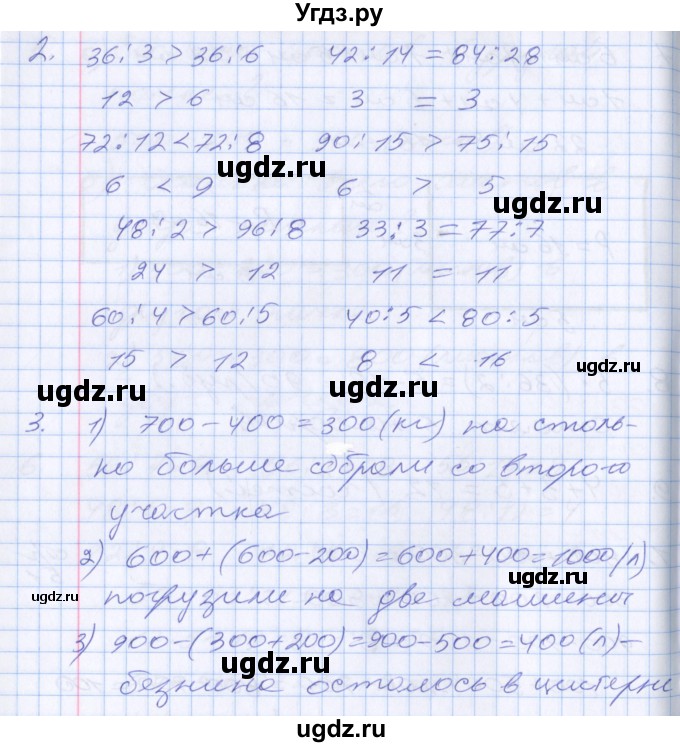 Угдз.ру
2. 36:3 > 36:6 42:14 = 84:28
12 > 6 3 = 3
72:12 < 72:8 90:15 > 75:15
ugdz.ru ugdz.ru
6 < 9 6 > 5
48:2 > 96:8 33:3 = 77:7
ugdz.ru
24 > 12 11 = 11
60:4 > 60:5 40:5 < 80:5
15 > 12 8 < 16
ugdz.ru ugdz.ru
3. 1) 700 - 400 = 300 (кг) на столь-
ко больше собрали со второго
ugdz.ru
участка
2) 600 + (600 - 200) = 600 + 400 = 1000 (л)
ugdz.ru
погрузили на две машины
ugdz.ru
3) 900 - (300 + 200) = 900 - 500 = 400 (л) -
ugdz.ru
бензина осталось в цистерне
ugdz.ru